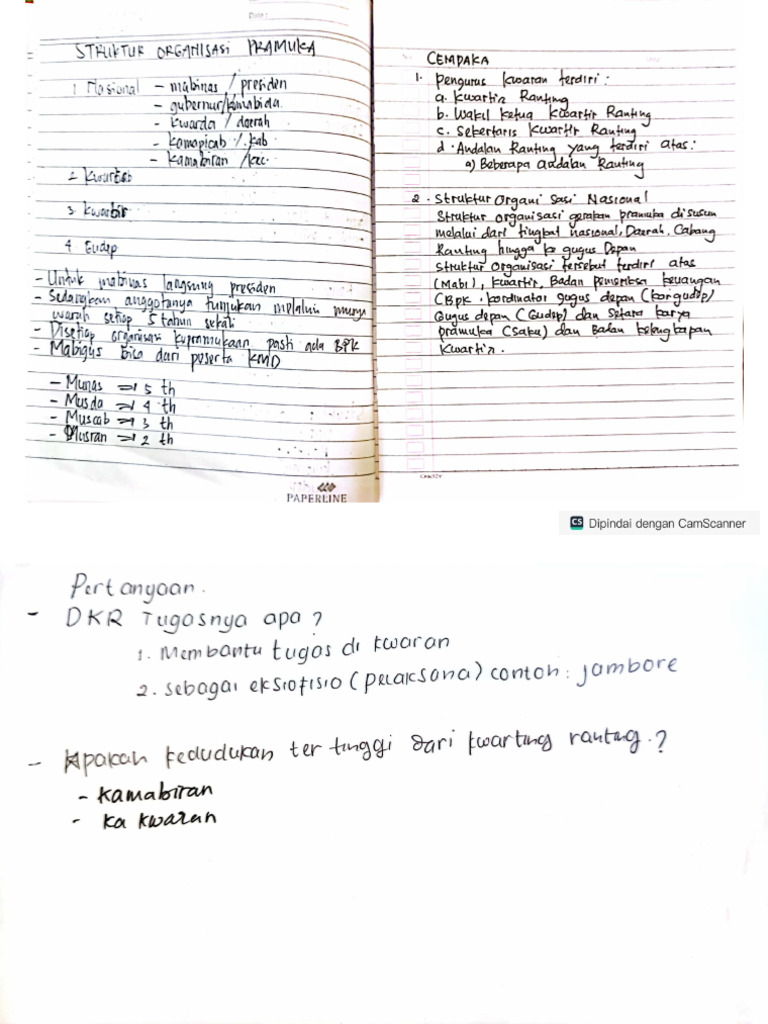 Date:
STRUKTUR ORGANISASI PRAMUKA
1 Nasional - mabinas / presiden
- gubernur/kamabida.
- kwarda / daerah
- kamapicab /. kab
- kamabiran /kec.
2 Kwarcab
3. kwartir
4. Gudep
- Untuk mabinas langsung presiden
- Sedangkan anggotanya tunjukan melalui musya
warah setiap 5 tahun sekali
- Disetiap organisasi kepramukaan pasti ada BPK
- Mabigus bisa dari peserta KMD
- Munas => 5 th
- Musda => 4 th
- Muscab => 3 th
- Musran => 2 th
PAPERLINE
CEMPAKA
1. Pengurus kwaran terdiri :
a. Kwartir Ranting
b. Wakil ketua Kwartir Ranting
c. Sekertaris Kwartir Ranting
d. Andalan Ranting yang terdiri atas :
a) Beberapa andalan Ranting
2. Struktur Organi sasi Nasional
Struktur organisasi gerakan pramuka disusun
melalui dari tingkat nasional, Daerah, Cabang
Ranting hingga ke gugus Depan
Struktur Organisasi tersebut terdiri atas
(Mabi), Kwartir, Badan pemeriksa keuangan
(BPK. kordinator gugus depan (korgudep)
Gugus depan (Gudep) dan Satuan karya
pramuka (Saka) dan Badan kelengkapan
Kwartir.
CS Dipindai dengan CamScanner
Pertanyaan.
- DKR Tugasnya apa ?
1. Membantu tugas di kwaran
2. sebagai eksiofisio (pelaksana) contoh : jambore
- Apakah kedudukan ter tinggi dari kwarting ranting. ?
- kamabiran
- ka kwaran